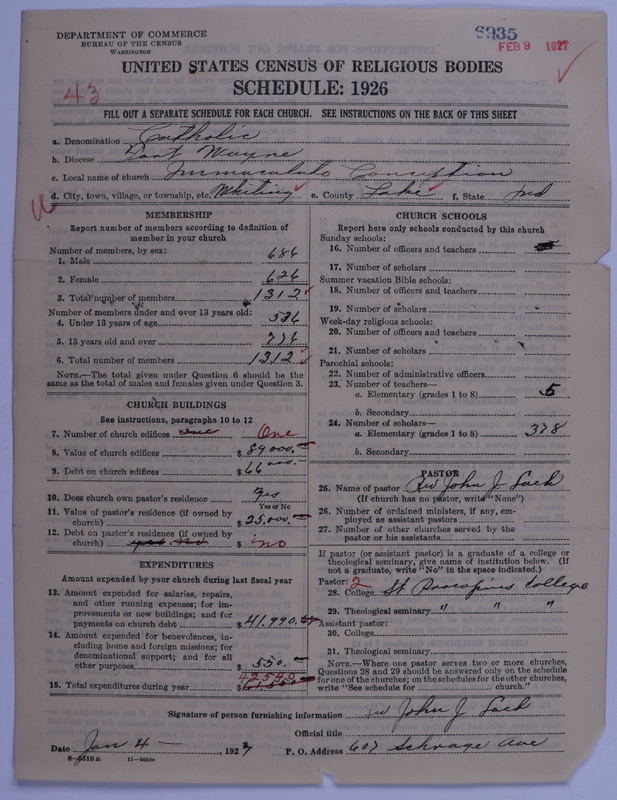 DEPARTMENT OF COMMERCE
BUREAU OF THE CENSUS
WASHINGTON
FEB 9 1927
UNITED STATES CENSUS OF RELIGIOUS BODIES
SCHEDULE: 1926
43
FILL OUT A SEPARATE SCHEDULE FOR EACH CHURCH. SEE INSTRUCTIONS ON THE BACK OF THIS SHEET
a. Denomination Catholic
b. Diocese Fort Wayne
c. Local name of church Immaculate Conception
d. City, town, village, or township, etc. Whiting e. County Lake f. State Ind
MEMBERSHIP
Report number of members according to definition of
member in your church
Number of members, by sex:
1. Male 686
2. Female 626
3. Total number of members 1312
Number of members under and over 13 years old:
4. Under 13 years of age
5. 13 years old and over
6. Total number of members 1312
NOTE.—The total given under Question 6 should be the
same as the total of males and females given under Question 3.
CHURCH BUILDINGS
See instructions, paragraphs 10 to 12
7. Number of church edifices One One
8. Value of church edifices $ 89000.
9. Debt on church edifices $ 66000.
10. Does church own pastor's residence Yes
Yes or No
11. Value of pastor's residence (if owned by
church) $ 25,000.
12. Debt on pastor's residence (if owned by
church) $ no
EXPENDITURES
Amount expended by your church during last fiscal year
13. Amount expended for salaries, repairs,
and other running expenses; for im-
provements or new buildings; and for
payments on church debt $ 41,990.
14. Amount expended for benevolences, in-
cluding home and foreign missions; for
denominational support; and for all
other purposes $ 550.
15. Total expenditures during year $ 42540
CHURCH SCHOOLS
Report here only schools conducted by this church
Sunday schools:
16. Number of officers and teachers
17. Number of scholars
Summer vacation Bible schools:
18. Number of officers and teachers
19. Number of scholars
Week-day religious schools:
20. Number of officers and teachers
21. Number of scholars
Parochial schools:
22. Number of administrative officers
23. Number of teachers—
a. Elementary (grades 1 to 8) 5
b. Secondary
24. Number of scholars—
a. Elementary (grades 1 to 8) 378
b. Secondary
PASTOR
25. Name of pastor Rev John J. Lach
(If church has no pastor, write "None")
26. Number of ordained ministers, if any, em-
ployed as assistant pastors
27. Number of other churches served by the
pastor or his assistants
If pastor (or assistant pastor) is a graduate of a college or
theological seminary, give name of institution below. (If
not a graduate, write "No" in the space indicated.)
Pastor: 2
28. College St. Procopius College
29. Theological seminary " " "
Assistant pastor:
30. College
31. Theological seminary
NOTE.—Where one pastor serves two or more churches,
Questions 28 and 29 should be answered only on the schedule
for one of the churches; on the schedules for the other churches,
write "See schedule for church."
Signature of person furnishing information Rev John J. Lach
Official title
Date Jan 4 — , 1927 P. O. Address 607 Schrage Ave